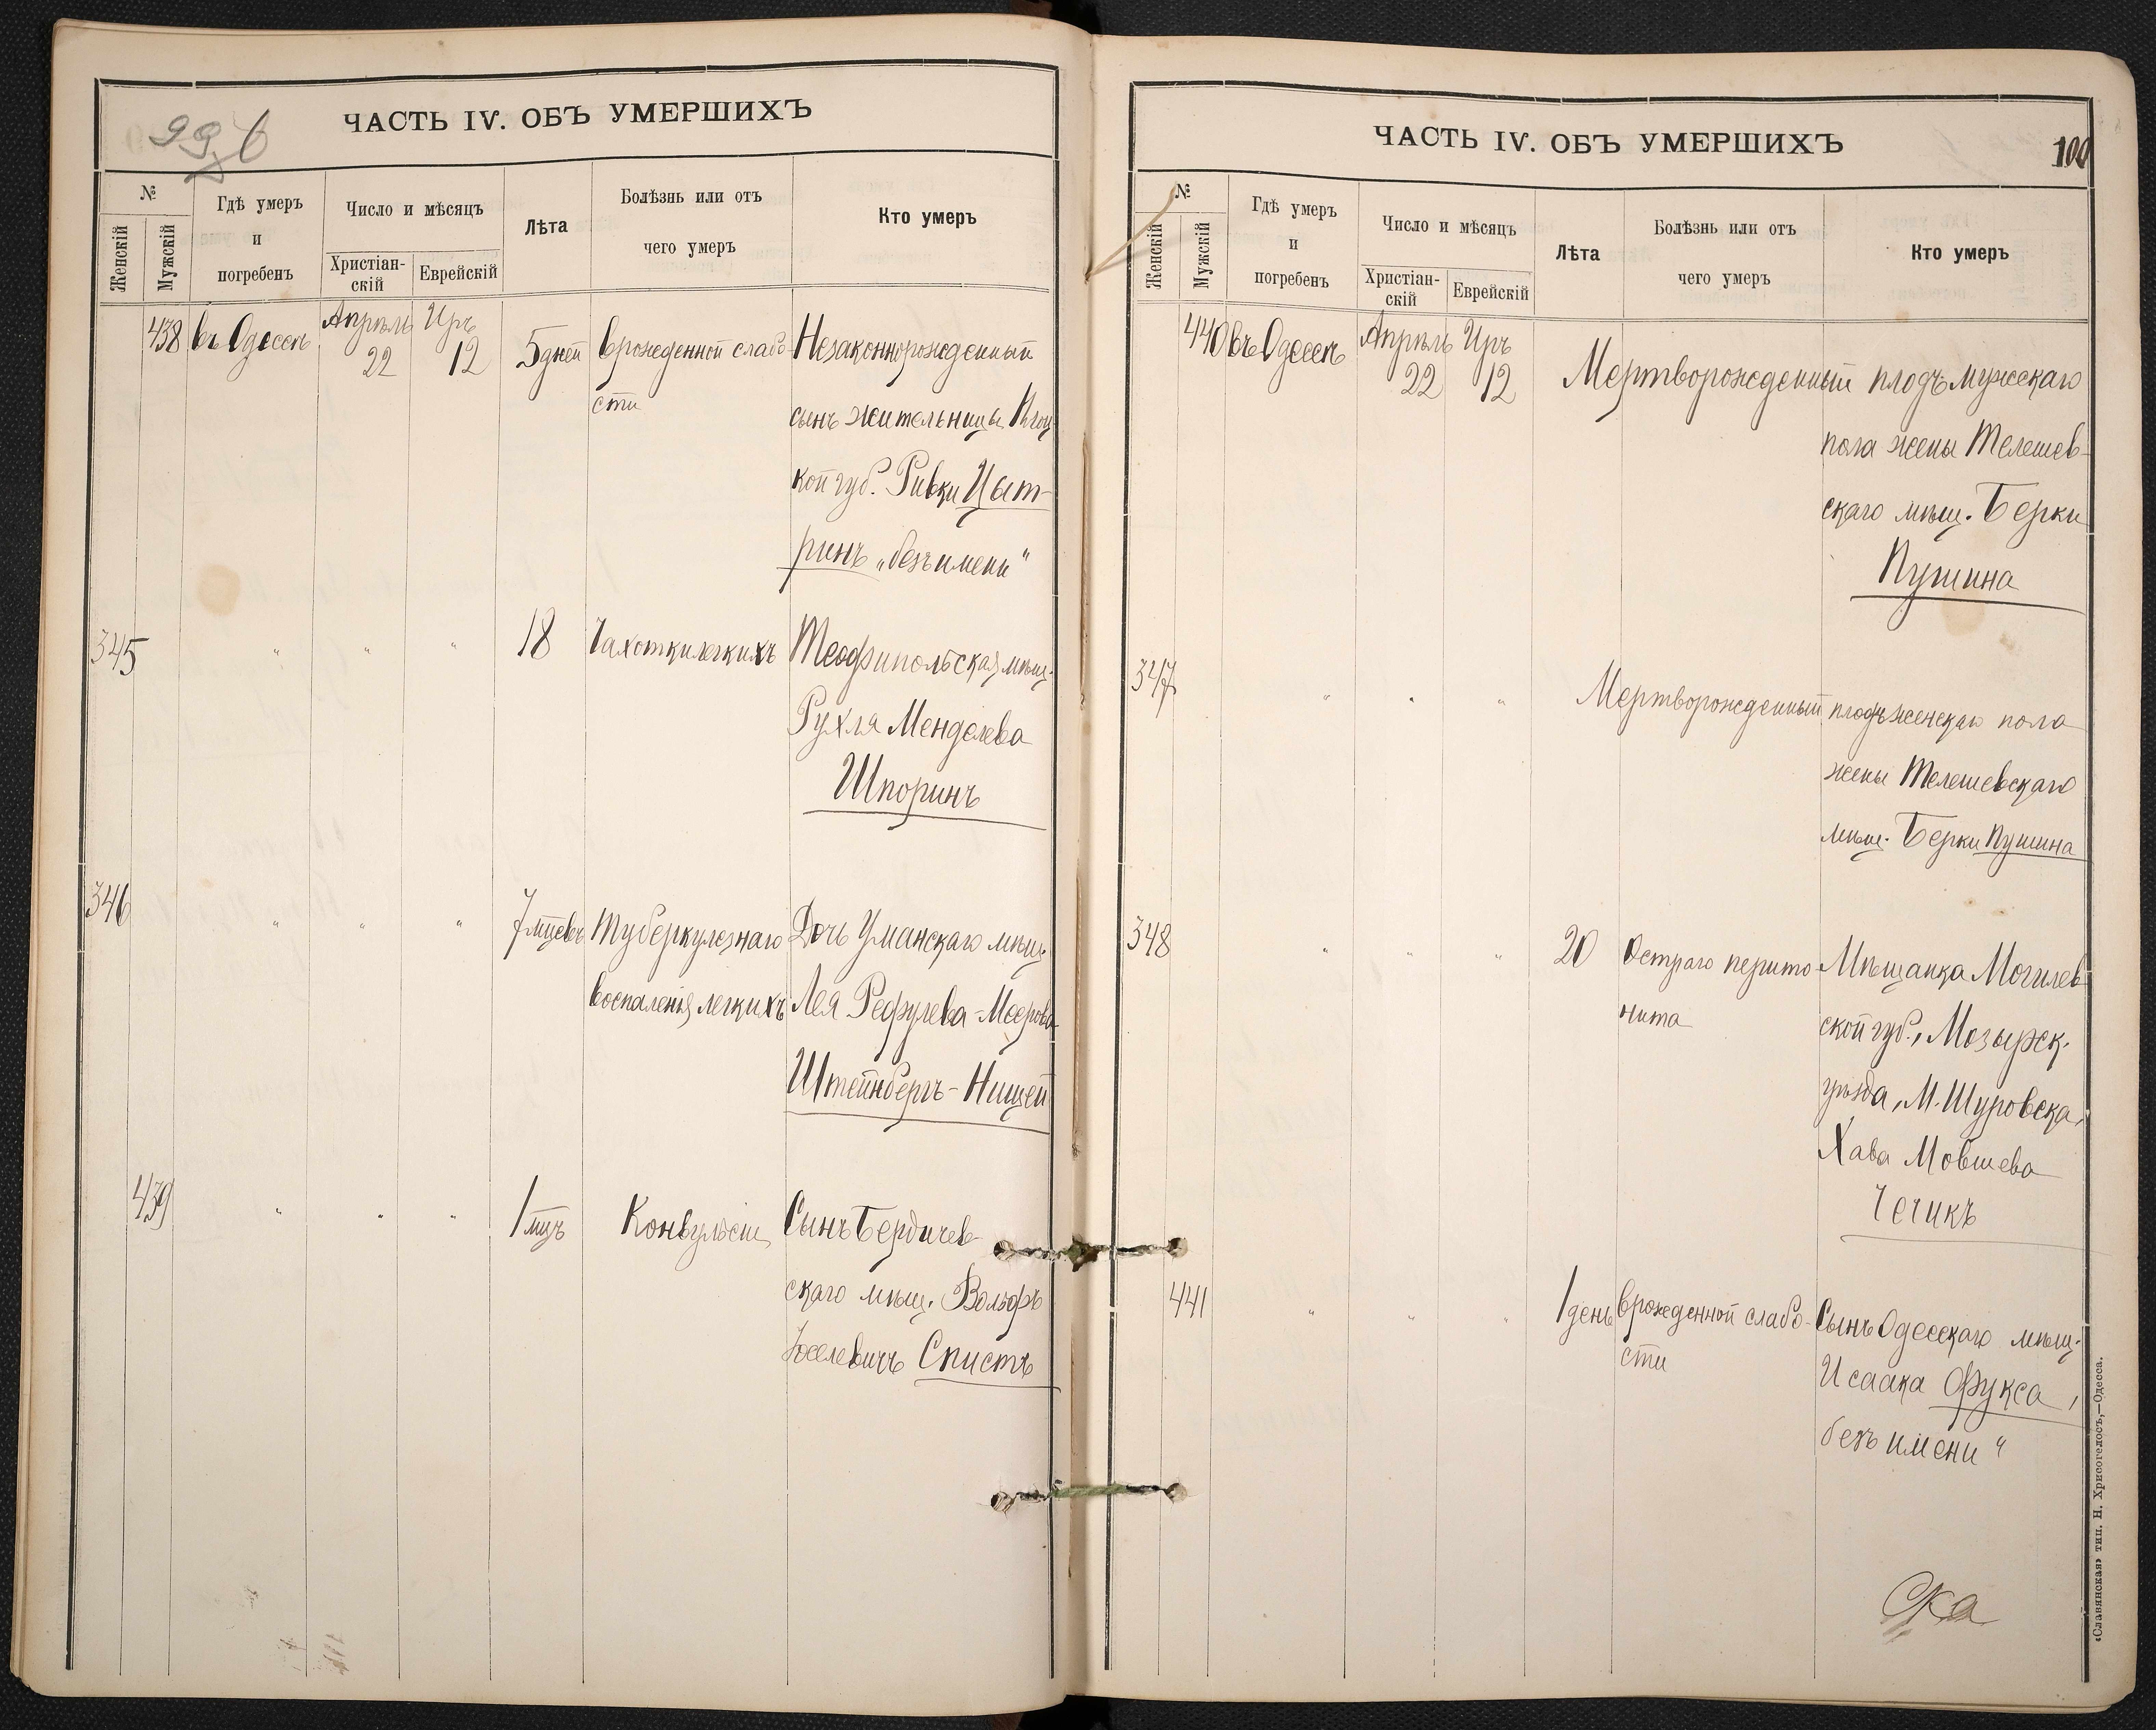 99 б
ЧАСТЬ IV. ОБЪ УМЕРШИХЪ
№
Женскій
Мужскій
Гдѣ умеръ
и
погребенъ
Число и мѣсяцъ
Христіан-
скій
Еврейскій
Лѣта
Болѣзнь или отъ
чего умеръ
Кто умеръ
438 въ Одессѣ Апрѣль 22 Иръ 12 5 дней врожденной слабо-
сти
Незаконнорожденный
сынъ жительницы Плоц
кой губ. Ривки Цыт-
ринъ „безъ имени"
345 " " " 18 Чахотки легкихъ Теофипольская мѣщ.
Рухля Менделева
Шпоринъ
346 " " " 7 мцевъ Туберкулезнаго Дочь Уманскаго мѣщ.
воспаленія легкихъ Лея Рефулева-Меерова
Штейнбергъ-Нищей
439 " " " 1 мцъ Конвульсіи Сынъ Бердичев-
скаго мѣщ. Вольфъ
Іоселевичъ Спистъ
ЧАСТЬ IV. ОБЪ УМЕРШИХЪ
100
№
Женскій
Мужскій
Гдѣ умеръ
и
погребенъ
Число и мѣсяцъ
Христіан-
скій
Еврейскій
Лѣта
Болѣзнь или отъ
чего умеръ
Кто умеръ
440 въ Одессѣ Апрѣль 22 Иръ 12 Мертворожденный плодъ мужскаго
пола жены Телешев-
скаго мѣщ. Берки
Пушина
347 " " " Мертворожденный плодъ женскаго пола
жены Телешевскаго
мѣщ. Берки Пушина
348 " " " 20 Остраго перито-
нита
Мѣщанка Могилев
ской губ., Мозырск.
уѣзда, М. Шуровска,
Хава Мовшева
Чечикъ
441 " " " 1 день врожденной слабо-
сти
Сынъ Одесскаго мѣщ.
Исаака Фукса,
безъ имени "
«Славянская» тип. Н. Хрисогелосъ,—Одесса.